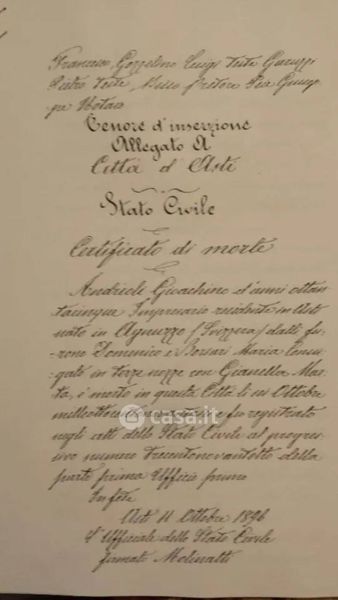 Francesco Gozzelino Luigi Teste Garuzzi
Pietro Teste Pretore Giusep
pe Notaio
Tenore d'inserzione
Allegato A
Città d'Asti
Stato Civile
Certificato di morte
Andreoli Gioachino d'anni ottan
tacinque Impresario residente in Asti
nato in Agnuzzo (Svizzera) dalli fu
rono Domenico e Maria Coniu
gato in terze nozze con Gianella Mar
ta, è morto in questa Città li sei Ottobre
fu registrato
negli atti dello Stato Civile al progres
sivo numero trecentonovantotto della
parte prima Ufficio primo
In fede
Asti 11 Ottobre 1896
L'Ufficiale dello Stato Civile
firmato Molinatti
casa.it